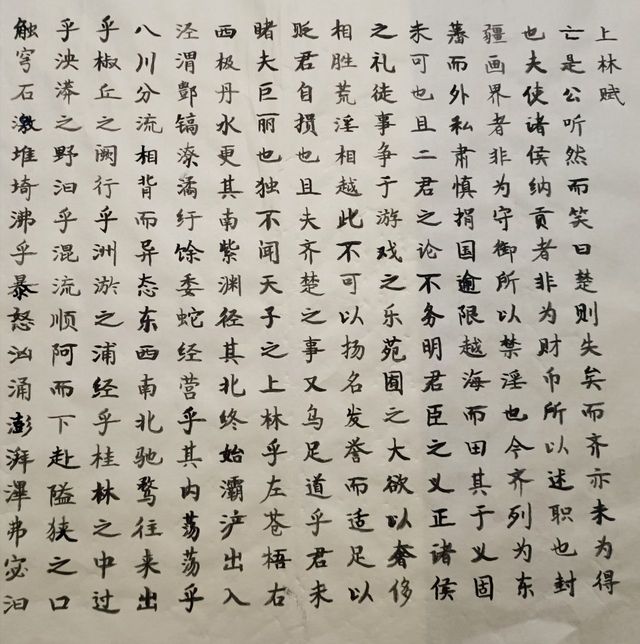 上林赋
亡是公听然而笑曰楚则失矣而齐亦未为得
也夫使诸侯纳贡者非为财币所以述职也封
疆画界者非为守御所以禁淫也今齐列为东
藩而外私肃慎捐国逾限越海而田其于义固
未可也且二君之论不务明君臣之义正诸侯
之礼徒事争于游戏之乐苑囿之大欲以奢侈
相胜荒淫相越此不可以扬名发誉而适足以
贬君自损也且夫齐楚之事又乌足道乎君未
睹夫巨丽也独不闻天子之上林乎左苍梧右
西极丹水更其南紫渊径其北终始灞浐出入
泾渭酆镐潦潏纡馀委蛇经营乎其内荡荡乎
八川分流相背而异态东西南北驰骛往来出
乎椒丘之阙行乎洲淤之浦经乎桂林之中过
乎泱漭之野汩乎混流顺阿而下赴隘狭之口
触穹石激堆埼沸乎暴怒汹涌澎湃滭弗宓汩